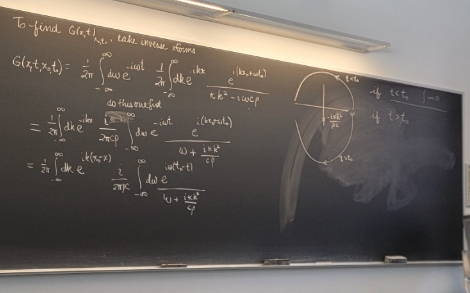 To find G(x,t; x₀,t₀), take inverse xforms
G(x,t,x₀,t₀) = 1/2π ∫_{-∞}^{∞} dω e^{-iωt} 1/2π ∫_{-∞}^{∞} dk e^{ikx} e^{i(kx₀+ωt₀)} / κk² - iωcρ
do this one first
= 1/2π ∫_{-∞}^{∞} dk e^{-ikx} i/2πcρ ∫_{-∞}^{∞} dω e^{-iωt} e^{i(kx₀+ωt₀)} / ω + iκk²/cρ
= 1/2π ∫_{-∞}^{∞} dk e^{ik(x₀-x)} i/2πρc ∫_{-∞}^{∞} dω e^{iω(t₀-t)} / ω + iκk²/cρ
t<t₀
-iκk²/ρc
t>t₀
if t<t₀ ∫→0
if t>t₀